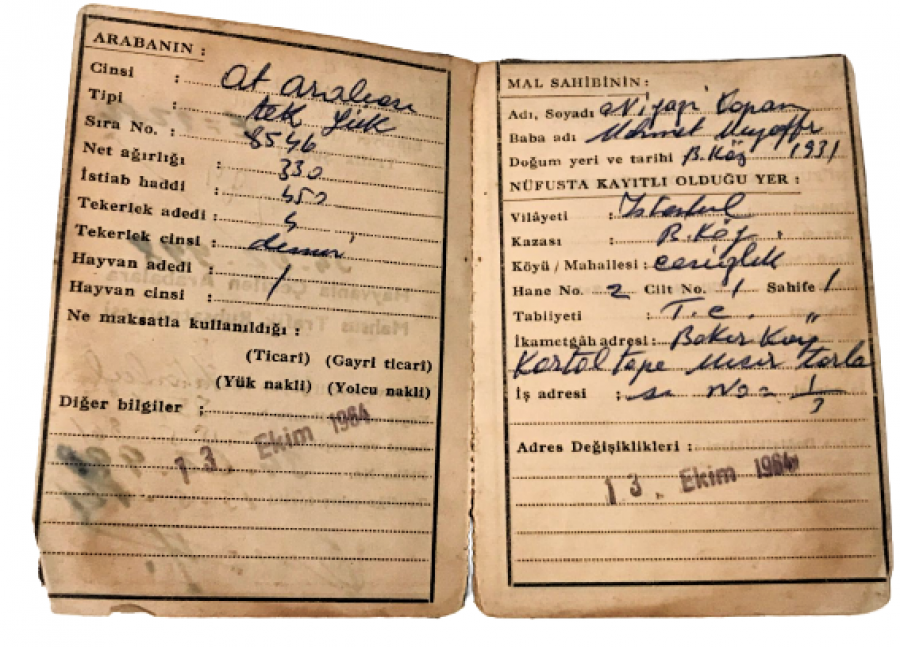 ARABANIN :
Cinsi : at arabası
Tipi : tek yük
Sıra No. : 8546
Net ağırlığı : 330
İstiab haddi : 450
Tekerlek adedi : 4
Tekerlek cinsi : demir
Hayvan adedi : 1
Hayvan cinsi :
Ne maksatla kullanıldığı :
(Ticari) (Gayri ticari)
(Yük nakli) (Yolcu nakli)
Diğer bilgiler :
13. Ekim 1964
MAL SAHİBİNİN :
Adı, Soyadı Niyazi
Baba adı Mehmet
Doğum yeri ve tarihi B.Köy 1931
NÜFUSTA KAYITLI OLDUĞU YER :
Vilâyeti : İstanbul
Kazası : B. Köy
Köyü / Mahallesi :
Hane No. 2 Cilt No. 1 Sahife 1
Tabiiyeti : T.C.
İkametgâh adresi : Bakır Köy
Kartal tepe
İş adresi : No = 1/3
Adres Değişiklikleri :
13. Ekim 1964